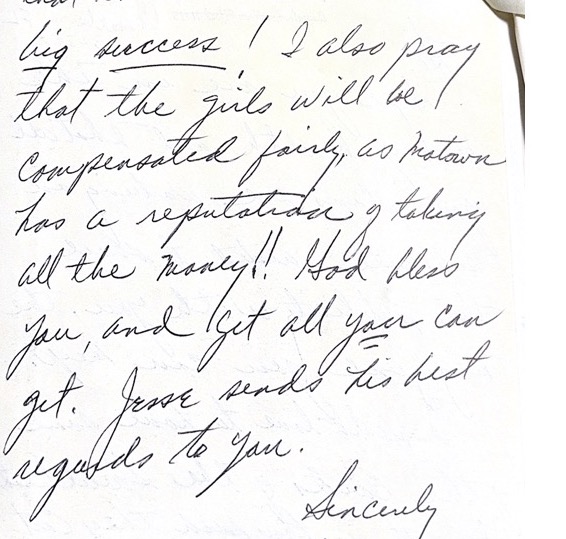 big success! I also pray
that the girls will be
compensated fairly, as Motown
has a reputation of taking
all the money!! God bless
you, and get all you can
get. Jesse sends his best
regards to you.
Sincerely